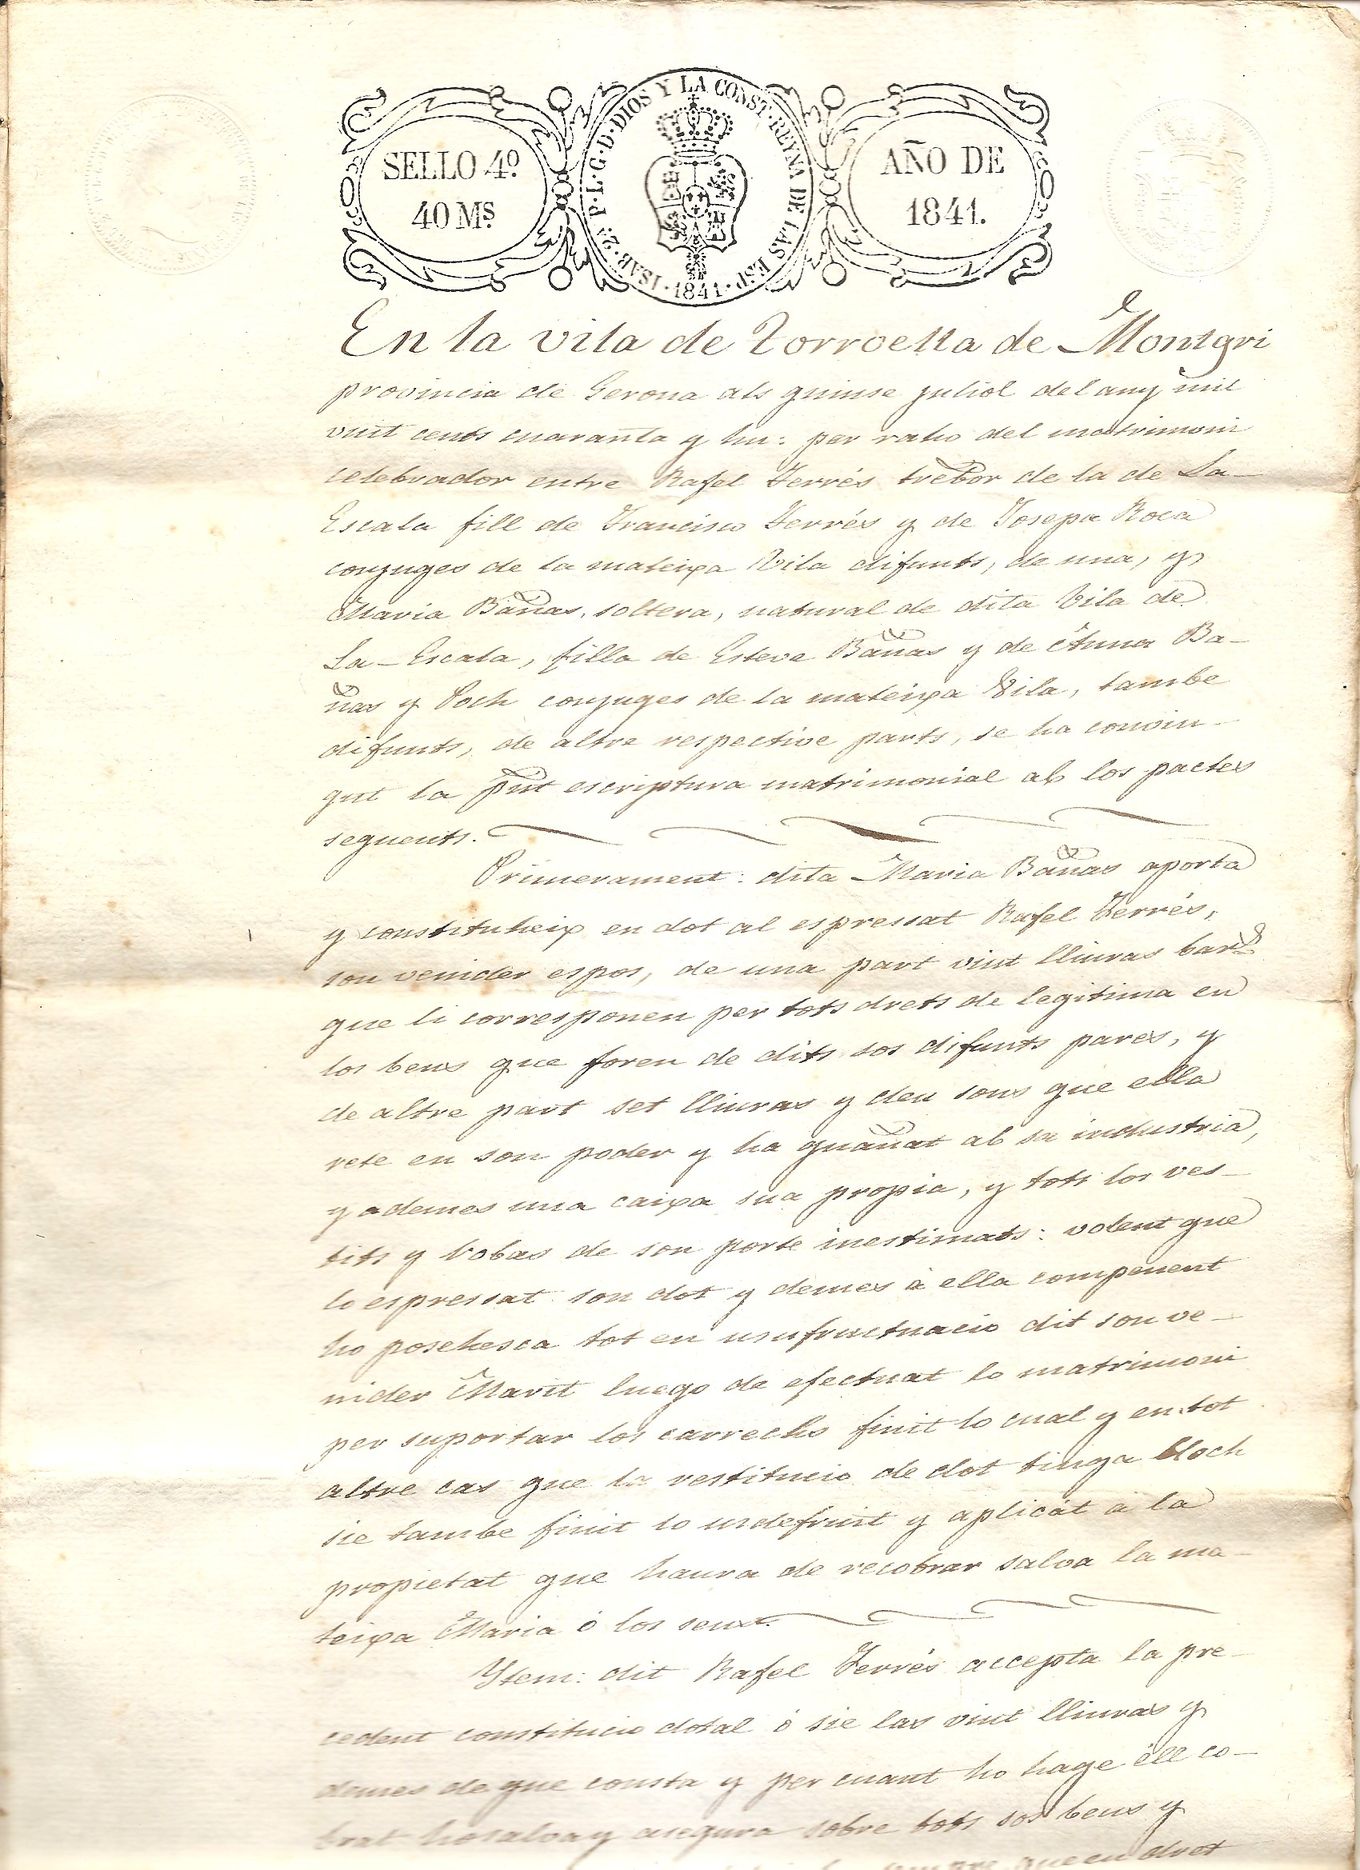 SELLO 4º
40 Mˢ.
ISAB. 2ª P. L. G. D. DIOS Y LA CONST. REYNA DE LAS ESP.
1841
AÑO DE
1841.
En la vila de Torroella de Montgri
provincia de Gerona als quinse juliol del any mil
vuit cents cuaranta y hu: per raho del matrimoni
celebrador entre Rafel Ferrés trebor de la de La-
Escala fill de Francisco Ferrés y de Josepa Roca
conjuges de la mateixa Vila difunts, de una, y
Maria Bañas, soltera, natural de dita Vila de
La-Escala, filla de Esteve Bañas y de Anna Ba-
ñas y Poch conjuges de la mateixa Vila, tambe
difunts, de altre respective parts, se ha convin-
gut la pnt escriptura matrimonial ab los pactes
seguents.
Primerament: dita Maria Bañas aporta
y constituheix en dot al espressat Rafel Ferrés,
son venider espos, de una part vint lliuras bar.ˢ
que li corresponen per tots drets de legitima en
los bens que foren de dits sos difunts pares, y
de altre part set lliuras y deu sous que ella
rete en son poder y ha guañat ab sa industria,
y ademes una caixa sua propia, y tots los ves-
tits y robas de son porte inestimats: volent que
lo espressat son dot y demes à ella competent
ho posehesca tot en usufructuacio dit son ve-
nider Marit luego de efectuat lo matrimoni
per suportar los carrechs finit lo cual y en tot
altre cas que la restitucio de dot tinga lloch
sie tambe finit lo usdefruit y aplicát á la
propietat que haura de recobrar salva la ma-
teixa Maria ó los seus.
Ytem: dit Rafel Ferrés accepta la pre-
cedent constitucio dotal ó sie las vint lliuras y
demes de que consta y per cuant ho hage ell co-
brat ho salva y asegura sobre tots sos bens y
que en dret